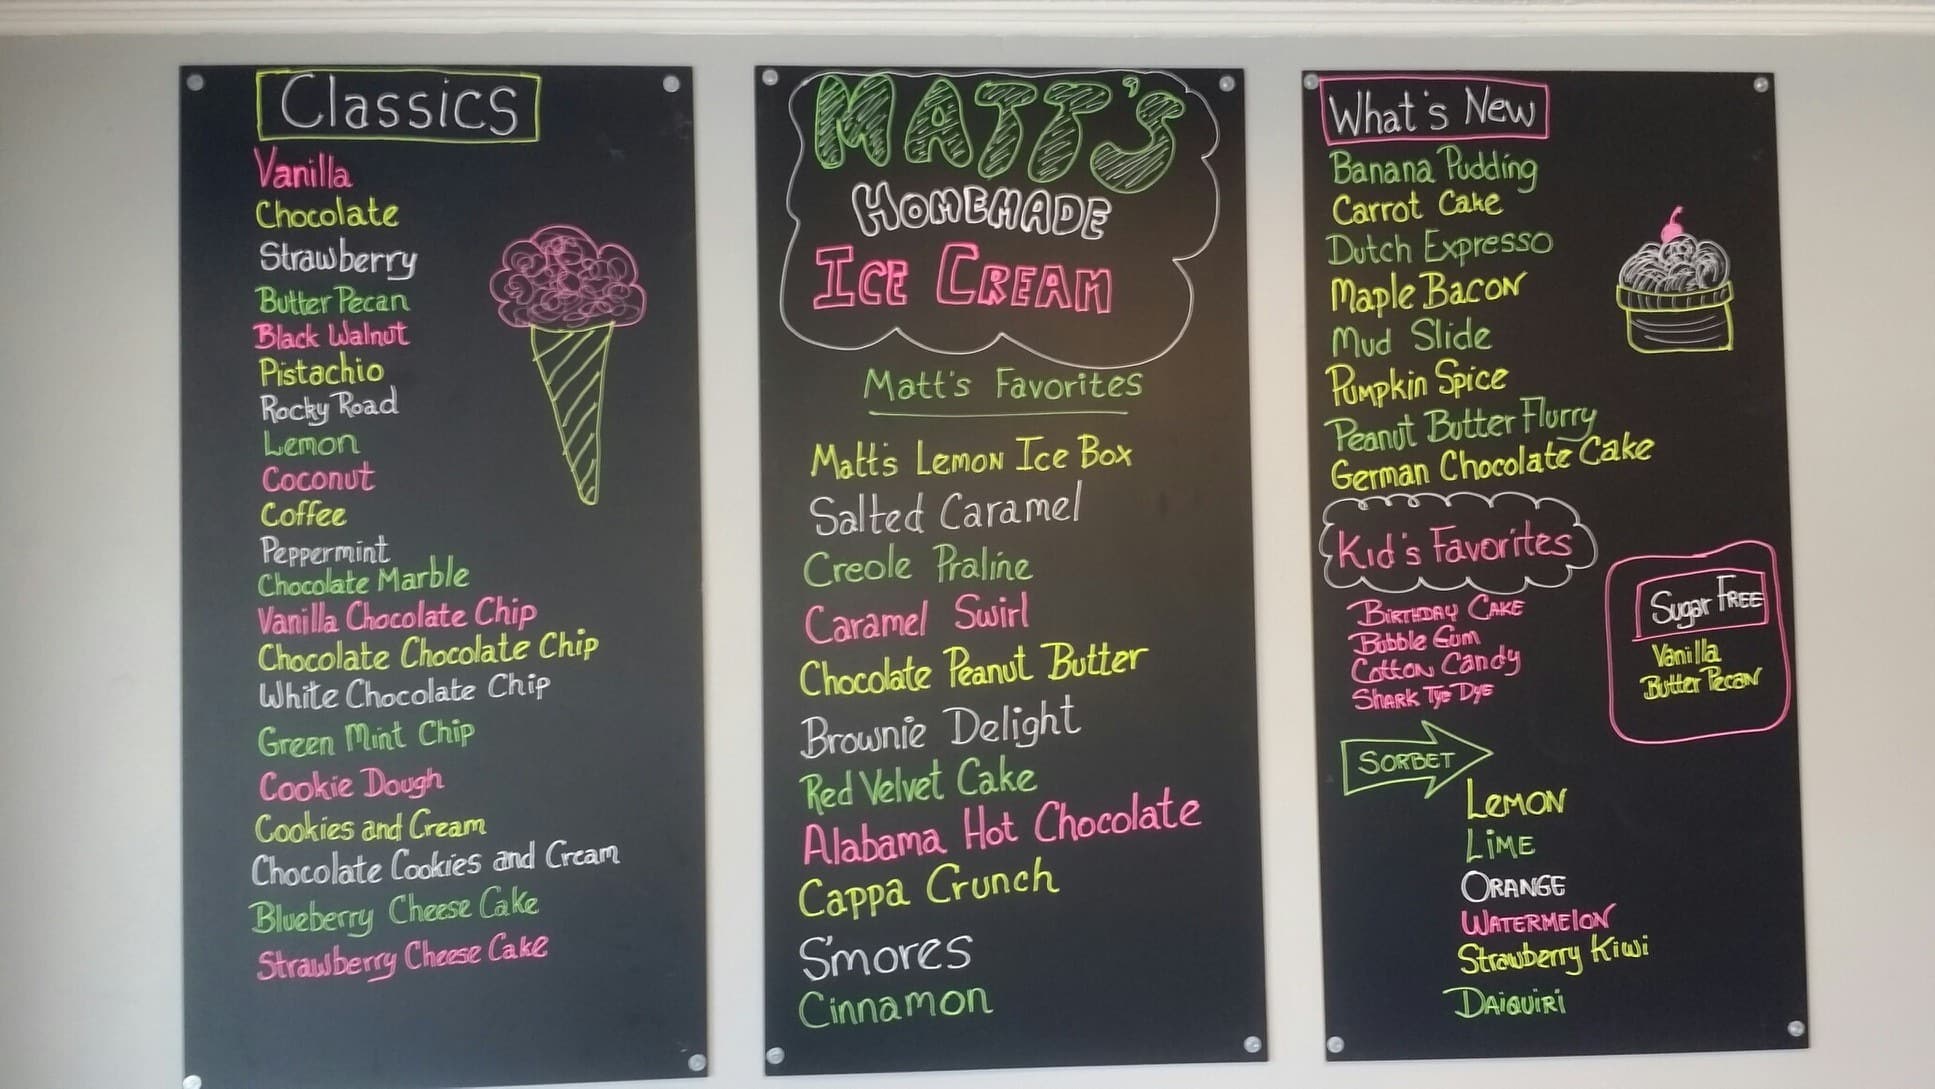 Classics
Vanilla
Chocolate
Strawberry
Butter Pecan
Black Walnut
Pistachio
Rocky Road
Lemon
Coconut
Coffee
Peppermint
Chocolate Marble
Vanilla Chocolate Chip
Chocolate Chocolate Chip
White Chocolate Chip
Green Mint Chip
Cookie Dough
Cookies and Cream
Chocolate Cookies and Cream
Blueberry Cheese Cake
Strawberry Cheese Cake
MATT'S
HOMEMADE
ICE CREAM
Matt's Favorites
Matt's Lemon Ice Box
Salted Caramel
Creole Praline
Caramel Swirl
Chocolate Peanut Butter
Brownie Delight
Red Velvet Cake
Alabama Hot Chocolate
Cappa Crunch
S'mores
Cinnamon
What's New
Banana Pudding
Carrot Cake
Dutch Expresso
Maple Bacon
Mud Slide
Pumpkin Spice
Peanut Butter Flurry
German Chocolate Cake
Kid's Favorites
BIRTHDAY CAKE
Bubble Gum
Cotton Candy
SHARK TYE DYE
Sugar FREE
Vanilla
Butter Pecan
SORBET
LEMON
LIME
ORANGE
WATERMELON
Strawberry Kiwi
DAIQUIRI